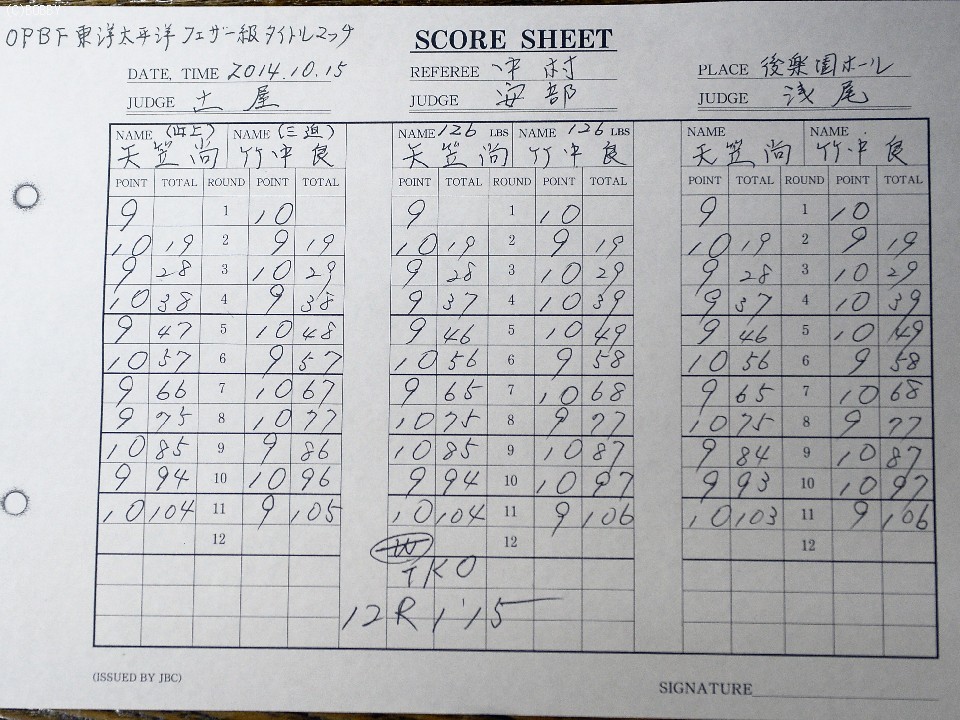 OPBF東洋太平洋フェザー級タイトルマッチ
SCORE SHEET
DATE, TIME 2014.10.15 REFEREE 中村 PLACE 後楽園ホール
JUDGE 土屋 JUDGE 安部 JUDGE 浅尾
NAME (山上) NAME (三迫) NAME 126 LBS NAME 126 LBS NAME NAME
天笠尚 竹中良 天笠尚 竹中良 天笠尚 竹中良
POINT TOTAL ROUND POINT TOTAL POINT TOTAL ROUND POINT TOTAL POINT TOTAL ROUND POINT TOTAL
9 1 10 9 1 10 9 1 10
10 19 2 9 19 10 19 2 9 19 10 19 2 9 19
9 28 3 10 29 9 28 3 10 29 9 28 3 10 29
10 38 4 9 38 9 37 4 10 39 9 37 4 10 39
9 47 5 10 48 9 46 5 10 49 9 46 5 10 49
10 57 6 9 57 10 56 6 9 58 10 56 6 9 58
9 66 7 10 67 9 65 7 10 68 9 65 7 10 68
9 75 8 10 77 10 75 8 9 77 10 75 8 9 77
10 85 9 9 86 10 85 9 10 87 9 84 9 10 87
9 94 10 10 96 9 94 10 10 97 9 93 10 10 97
10 104 11 9 105 10 104 11 9 106 10 103 11 9 106
12 W 12 12
TKO
12R 1'15
(ISSUED BY JBC)
SIGNATURE